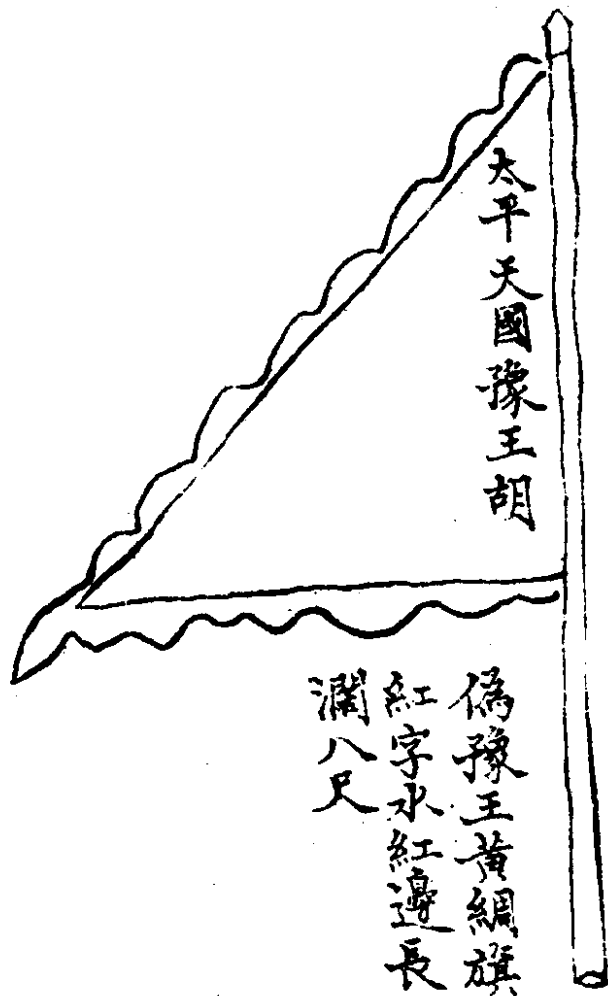 太平天國豫王胡
偽豫王黃綢旗
紅字水紅邊長
濶八尺